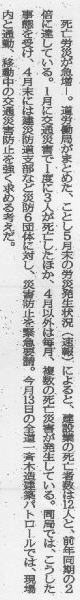 死亡労災が急増―。道労働局がまとめた、ことし5月末の労災発生状況(速報)によると、建設業の死亡者数は12人と、前年同期の2
倍に達している。1月に交通災害で1度に3人が死亡したほか、4月以外は毎月、複数の死亡災害が発生している。同局では、こうした
事態を受け、4月末には建災防道支部など災防6団体に対し、災害防止を緊急要請。今月13日の全道一斉木造建築パトロールでは、現場
内と通勤、移動中の交通災害防止を強く求める考えだ。